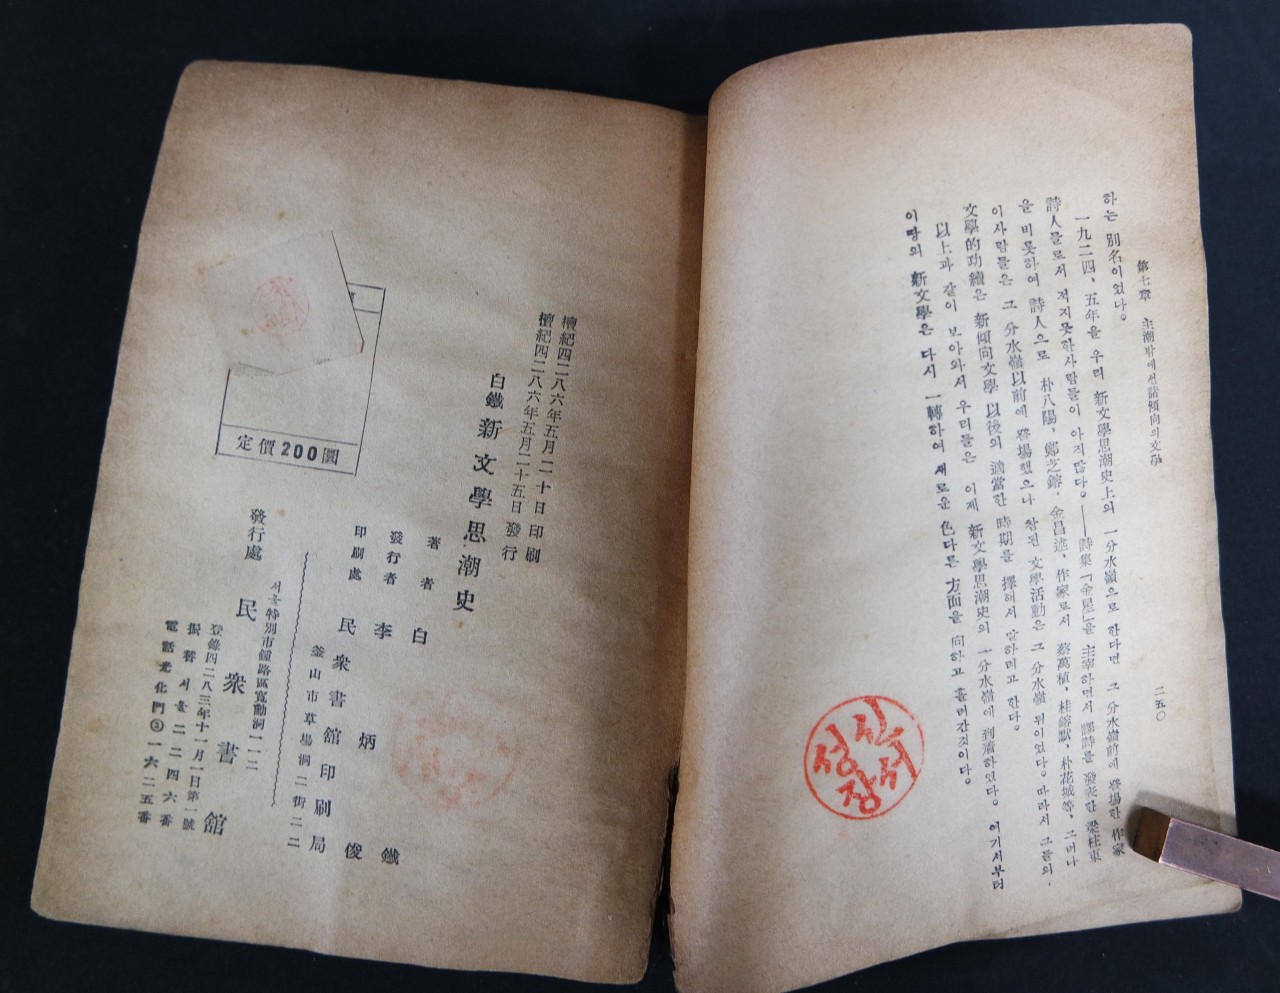 第七章 主潮밖에선諸傾向의文學
二五〇
하는 別名이었다。
一九二四, 五年을 우리 新文學思潮史上의 一分水嶺으로 한다면 그 分水嶺前에 登場한 作家
詩人들로서 적지못한사람들이 아지많다。――詩集「金星」을 主宰하면서 譯詩를 發表한 梁柱東
을 비롯하여 詩人으로 朴八陽, 鄭芝鎔, 金昌述, 作家로서 蔡萬植, 桂鎔默, 朴花城等, 그러나
이사람들은 그 分水嶺以前에 登場했으나 참된 文學活動은 그 分水嶺 뒤이었다。따라서 그들의
文學的功績은 新傾向文學 以後의 適當한 時期를 擇해서 말하려고 한다。
以上과 같이 보아와서 우리들은 이제 新文學思潮史의 一分水嶺에 到着하였다。여기서부터
이땅의 新文學은 다시 一轉하여 새로운 色다른 方面을 向하고 흘러간것이다。
신서
성장
檀紀四二八六年五月二十日 印刷
檀紀四二八六年五月二十五日 發行
白鐵 新文學思潮史
著者 白鐵
發行者 李炳俊
印刷處 民衆書館印刷局
釜山市草場洞二街二二
서울特別市鍾路區寬勳洞一一二
發行處 民衆書館
登錄四二八三年十一月一日第一號
振替서울二二四六番
電話光化門③一六二五番
定價200圜